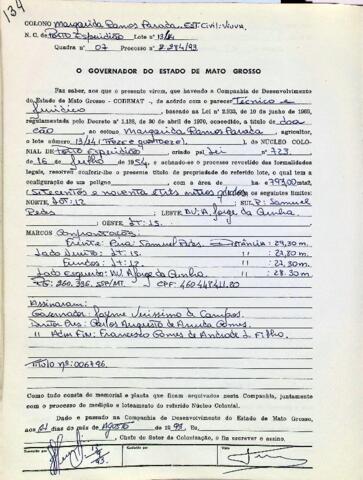 134
COLONO Margarida Ramos Parada. EST. Civil: Viuva.
N. C. de Porto Esperidião Lote nº 13/14
Quadra nº 07 Processo nº 2.284/93
O GOVERNADOR DO ESTADO DE MATO GROSSO
Faz saber, aos que o presente virem, que havendo a Companhia de Desenvolvimento
do Estado de Mato Grosso - CODEMAT -, de acôrdo com o parecer Técnico e
Jurídico, baseado na Lei n.º 2.933, de 19 de junho de 1969,
regulamentada pelo Decreto n.º 1.138, de 30 de abril de 1970, concedido, a título de doa
ção ao colono Margarida Ramos Parada, agricultor,
o lote número 13/14 (Treze e quatorze), do NÚCLEO COLO-
NIAL DE Porto Esperidião, criado pela Lei nº 723,
de 16 de Julho de 1954, e achando-se o processo revestido das formalidades
legais, resolvem conferir-lhe o presente título de propriedade do referido lote, o qual tem a
configuração de um polígono com a área de 793,00 mts²
(setecentos e noventa e três metros quadrados) e os seguintes limites:
NORTE: LT: 12 SUL: R: Samuel
Pedes LESTE: AV: A. Jorge da Cunha
OESTE: LT: 15.
MARCOS Confrontações:
Frente: Rua: Samuel Pedes. Distância: 29,30 m.
Lado direito: LT: 15. " : 27,80 m.
Fundos: LT: 12. " : 27,30 m.
Lado esquerdo: AV. A. Jorge da Cunha. " : 28,30 m.
SSP/MT. CPF: 460 448 411.20
Assinaram:
Governador: Jayme Verissimo de Campos.
Diretor Pres: Carlos Augusto de Arruda Gomes.
" Adm Fin: Francisco Gomes de Andrade L. Filho.
Título nº: 006796.
Como tudo consta do memorial e planta que ficam arquivados nesta Companhia, juntamente
com o processo de medição e loteamento do referido Núcleo Colonial.
Dado e passado na Companhia de Desenvolvimento do Estado de Mato Grosso,
aos dias do mês de Agosto de 1993. Eu,
, Chefe do Setor de Colonização, o fiz escrever e assino.